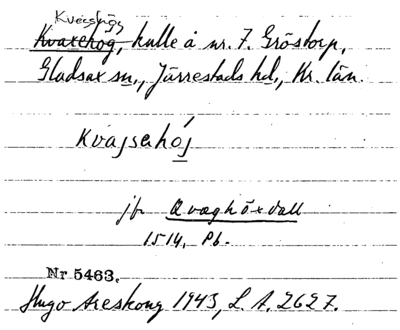 Kvaxhög
Kvaxehög, kulle å nr. 7. Gröstorp,
Gladsax sn., Järrestads hd., Kr. län.
Kvajsahój
jfr Qvaghöxdall
1514. Pb.
Nr 5463.
Hugo Areskoug 1943, L. A. 2627.